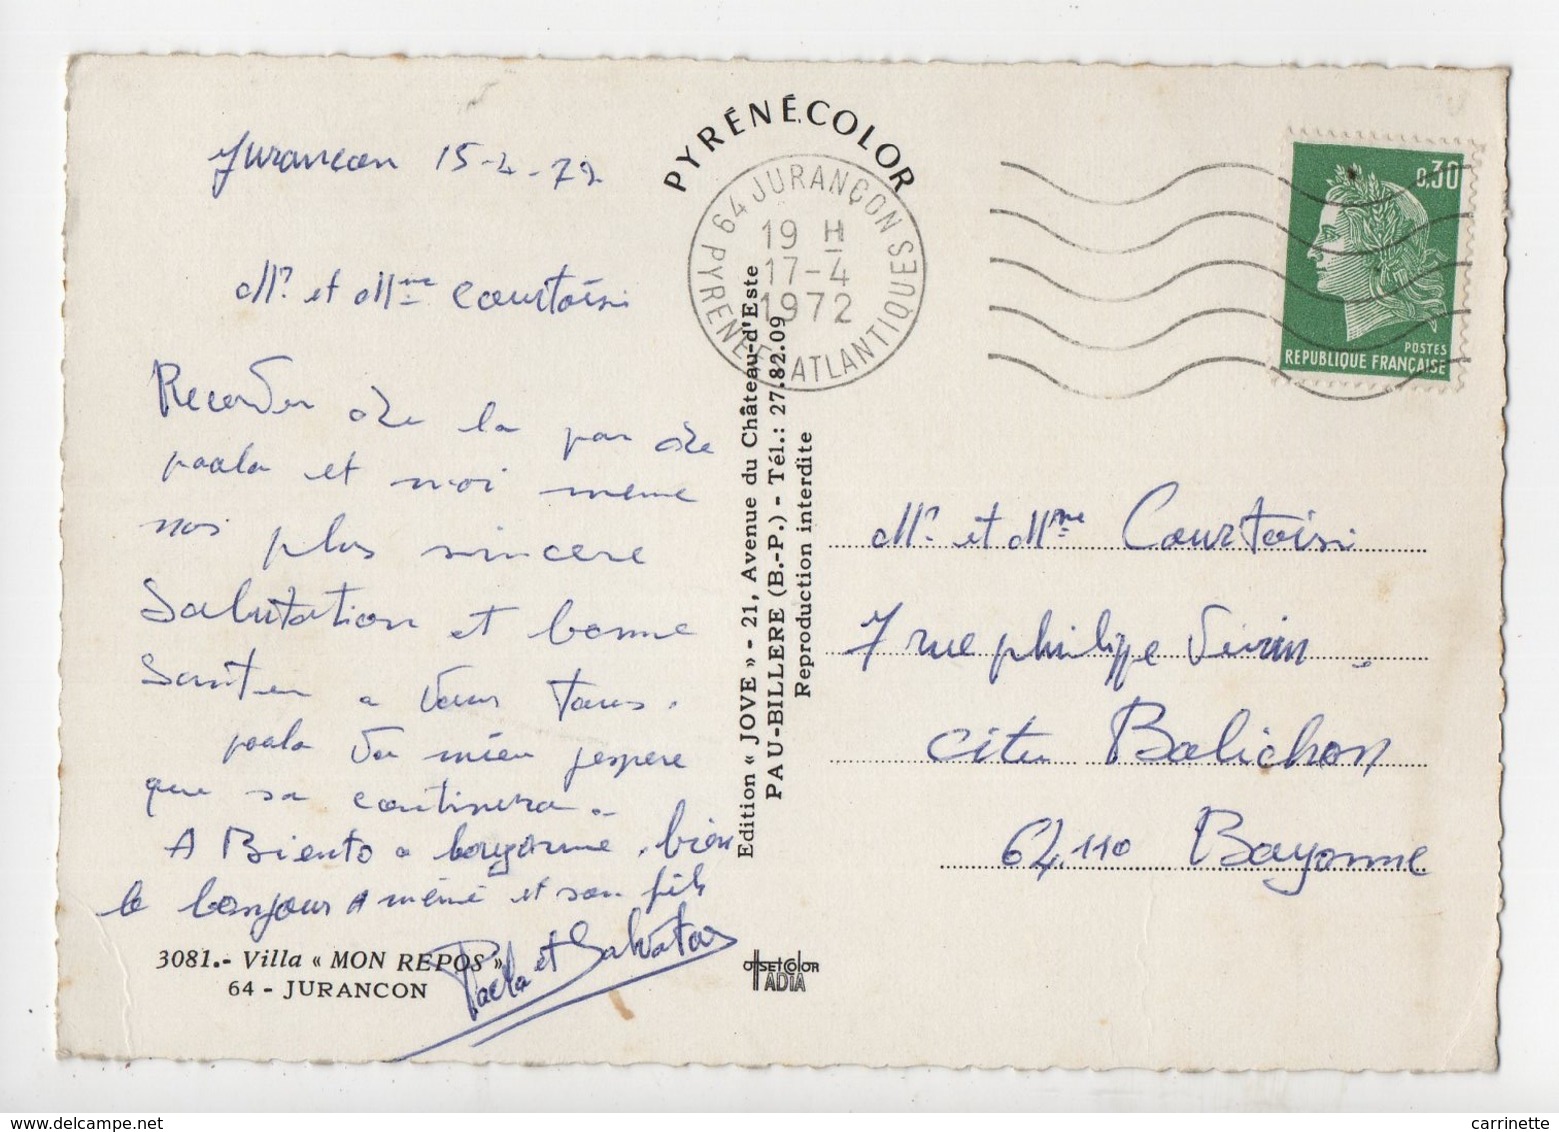 PYRÉNÉCOLOR
Jurancon 15-4-72
Mr. et Mme Courtoisi
Recevder de la par de
paola et moi meme
nos plus sincere
Salutation et bonne
Santer a vous tous.
paola va mieu j'espere
que sa continura..
A Biento a bayonne. bien
le bonjour a mémé et son fils
Paola et Salvator
3081.- Villa « MON REPOS »
64 - JURANCON
Edition « JOVE » - 21, Avenue du Château-d'Este
PAU-BILLERE (B.-P.) - Tél.: 27.82.09
Reproduction interdite
OffsetColor
IADIA
64 JURANÇON
PYRENEES ATLANTIQUES
19 H
17-4
1972
0,30
POSTES
REPUBLIQUE FRANÇAISE
Mr. et Mme Courtoisi
7 rue philippe Vivin.
citer Balichon
64.110 Bayonne
carrinette
www.delcampe.net